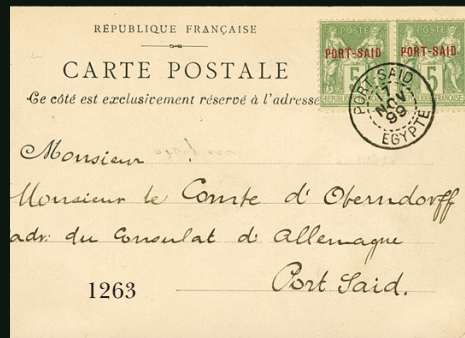 RÉPUBLIQUE FRANÇAISE
CARTE POSTALE
Ce côté est exclusivement réservé à l'adresse
POSTE POSTE
PORT-SAID PORT-SAID
5 5
PORT-SAID
17
NOV
99
EGYPTE
Monsieur
Monsieur le Comte d'Oberndorff
adr. du Consulat d'Allemagne
Port Said.
1263